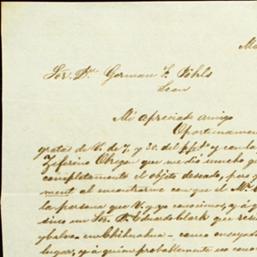 Ma
Sor. Dn. German F. Pohls
Leon
Mi apreciado amigo
Oportunamen
gratas de V. de 7 y 30 del ppdo y con la
Zeferino Obregon que me dió mucho g
completamente el objeto deseado, pero
ment al encontrarme con que el Mr.
la persona que V. y yo conocimos, y á q
sino un Sor. D. Eduardo Clark que res
y habia en Chihuahua como ensayad
lugar, y á quien probablemente no cono